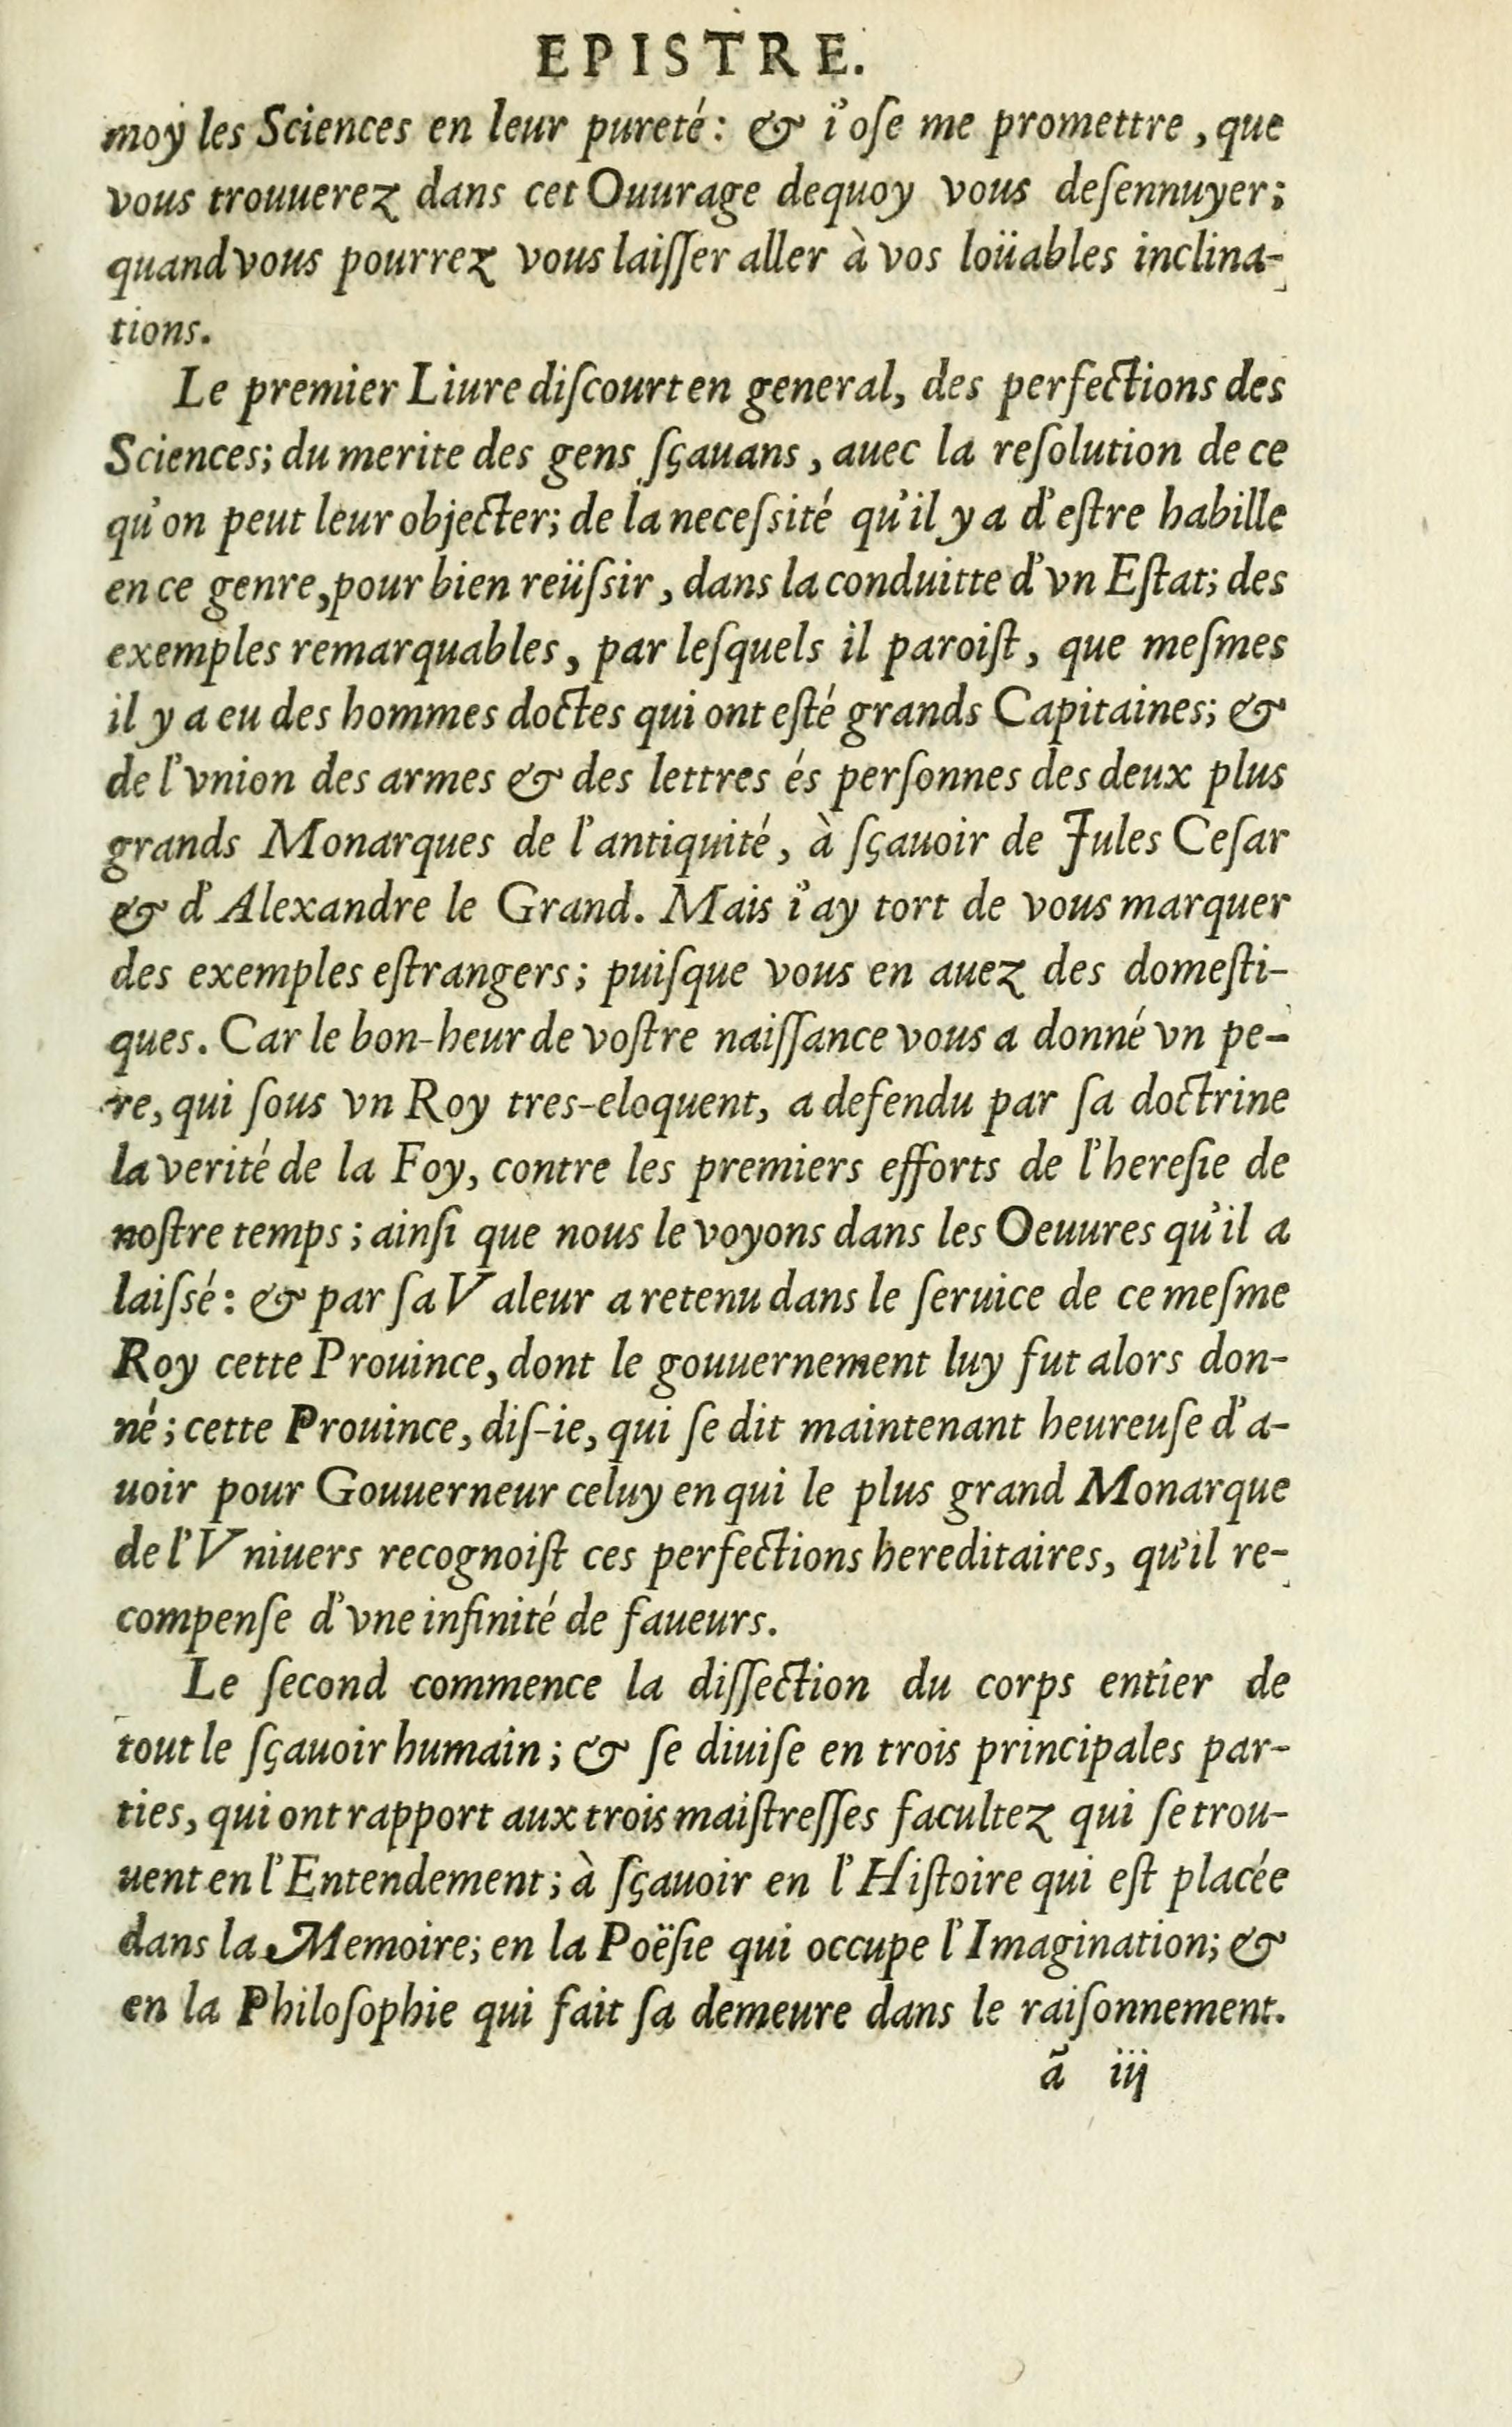 EPISTRE.
moy les Sciences en leur pureté: & i'oſe me promettre, que
vous trouuerez dans cet Ouurage dequoy vous deſennuyer;
quand vous pourrez vous laiſſer aller à vos loüables inclina-
tions.
Le premier Liure diſcourt en general, des perfections des
Sciences; du merite des gens ſçauans, auec la reſolution de ce
qu'on peut leur objecter; de la neceſsité qu'il y a d'eſtre habille
en ce genre, pour bien reüſsir, dans la conduitte d'vn Eſtat; des
exemples remarquables, par leſquels il paroiſt, que meſmes
il y a eu des hommes doctes qui ont eſté grands Capitaines; &
de l'vnion des armes & des lettres és perſonnes des deux plus
grands Monarques de l'antiquité, à ſçauoir de Jules Ceſar
& d'Alexandre le Grand. Mais i'ay tort de vous marquer
des exemples eſtrangers; puiſque vous en auez des domeſti-
ques. Car le bon-heur de voſtre naiſſance vous a donné vn pe-
re, qui ſous vn Roy tres-eloquent, a defendu par ſa doctrine
la verité de la Foy, contre les premiers efforts de l'hereſie de
noſtre temps; ainſi que nous le voyons dans les Oeuures qu'il a
laiſsé: & par ſa Valeur a retenu dans le ſeruice de ce meſme
Roy cette Prouince, dont le gouuernement luy fut alors don-
né; cette Prouince, diſ-ie, qui ſe dit maintenant heureuſe d'a-
uoir pour Gouuerneur celuy en qui le plus grand Monarque
de l'Vniuers recognoiſt ces perfections hereditaires, qu'il re-
compenſe d'vne infinité de faueurs.
Le ſecond commence la diſſection du corps entier de
tout le ſçauoir humain; & ſe diuiſe en trois principales par-
ties, qui ont rapport aux trois maiſtreſſes facultez qui ſe trou-
uent en l'Entendement; à ſçauoir en l'Hiſtoire qui eſt placée
dans la Memoire; en la Poëſie qui occupe l'Imagination; &
en la Philoſophie qui fait ſa demeure dans le raiſonnement.
ã iij